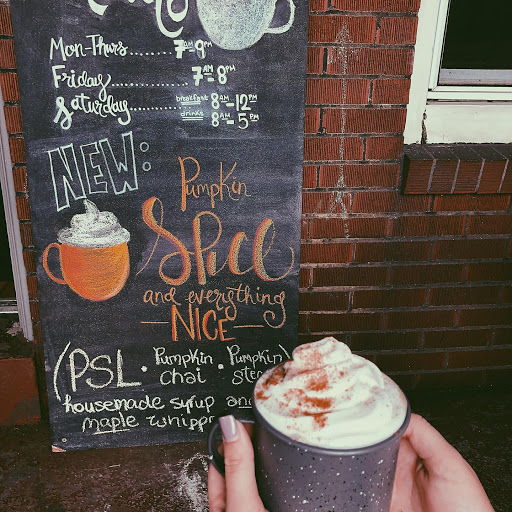 Mon-Thurs.........7AM-9PM
Friday...............7AM-8PM
Saturday............breakfast 8AM-12PM
drinks 8AM-5PM
NEW:
Pumpkin
Spice
and everything
-NICE-
(PSL · Pumpkin chai · Pumpkin
housemade syrup
maple